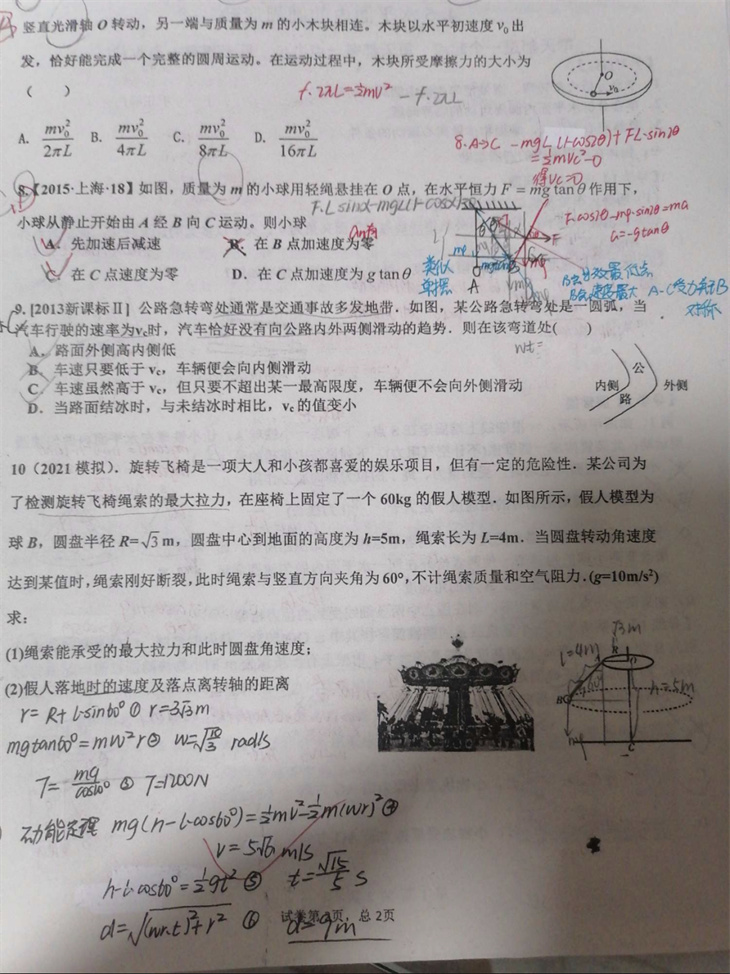 竖直光滑轴 O 转动，另一端与质量为 m 的小木块相连。木块以水平初速度 v₀ 出
发，恰好能完成一个完整的圆周运动。在运动过程中，木块所受摩擦力的大小为
（　　）
f·2πL=½mv² －f·2πL
A. mv₀²/2πL B. mv₀²/4πL C. mv₀²/8πL D. mv₀²/16πL
8. A→C －mgL(1-cos2θ)+FL·sin2θ
=½mVc²-0
得Vc=0
8.【2015·上海·18】如图，质量为 m 的小球用轻绳悬挂在 O 点，在水平恒力 F = mg tanθ 作用下，
小球从静止开始由 A 经 B 向 C 运动。则小球
F·Lsinα-mgL(1-cosα)
F·cos2θ-mg·sin2θ=ma
a=-gtanθ
A．先加速后减速 B．在 B 点加速度为零
C．在 C 点速度为零 D．在 C 点加速度为 g tanθ
类似
单摆
A
B
F
mg
A-C受力关于B
对称
9. [2013新课标Ⅱ] 公路急转弯处通常是交通事故多发地带。如图，某公路急转弯处是一圆弧，当
汽车行驶的速率为vc时，汽车恰好没有向公路内外两侧滑动的趋势。则在该弯道处(　　)
A．路面外侧高内侧低
B．车速只要低于 vc，车辆便会向内侧滑动
C．车速虽然高于 vc，但只要不超出某一最高限度，车辆便不会向外侧滑动
D．当路面结冰时，与未结冰时相比，vc 的值变小
内侧 公路 外侧
10（2021 模拟）．旋转飞椅是一项大人和小孩都喜爱的娱乐项目，但有一定的危险性．某公司为
了检测旋转飞椅绳索的最大拉力，在座椅上固定了一个 60kg 的假人模型．如图所示，假人模型为
球 B，圆盘半径 R=√3 m，圆盘中心到地面的高度为 h=5m，绳索长为 L=4m．当圆盘转动角速度
达到某值时，绳索刚好断裂，此时绳索与竖直方向夹角为 60°，不计绳索质量和空气阻力．(g=10m/s²)
求：
(1)绳索能承受的最大拉力和此时圆盘角速度；
(2)假人落地时的速度及落点离转轴的距离
√3m
L=4m
R
h=5m
60°
B
mg
C
r= R+ L·sin60° ① r=3√3m
mgtan60°=mω²r② ω=√(10/3) rad/s
T= mg/cos60° ③ T=1200N
动能定理 mg(h-L·cos60°)=½mv²-½m(ωr)² ④
v=5√6 m/s
h-L·cos60°=½gt² ⑤ t=√15/5 s
d=√((ωr·t)²+r²) ⑥ d=9m
试卷第 页，总 2页